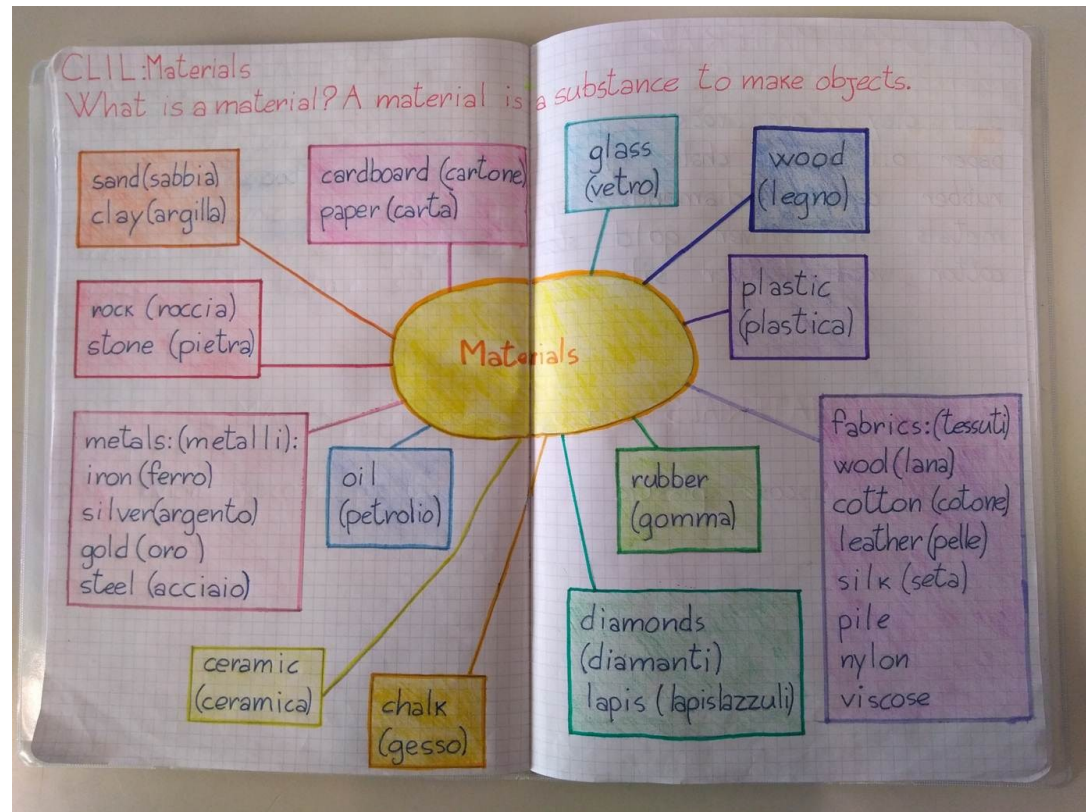 CLIL:Materials
What is a material? A material is a substance to make objects.
sand(sabbia)
clay(argilla)
cardboard (cartone)
paper (carta)
glass
(vetro)
wood
(legno)
rock (roccia)
stone (pietra)
plastic
(plastica)
Materials
metals:(metalli):
iron (ferro)
silver(argento)
gold (oro)
steel (acciaio)
oil
(petrolio)
rubber
(gomma)
fabrics:(tessuti)
wool(lana)
cotton (cotone)
leather(pelle)
silk (seta)
pile
nylon
viscose
ceramic
(ceramica)
chalk
(gesso)
diamonds
(diamanti)
lapis (lapislazzuli)